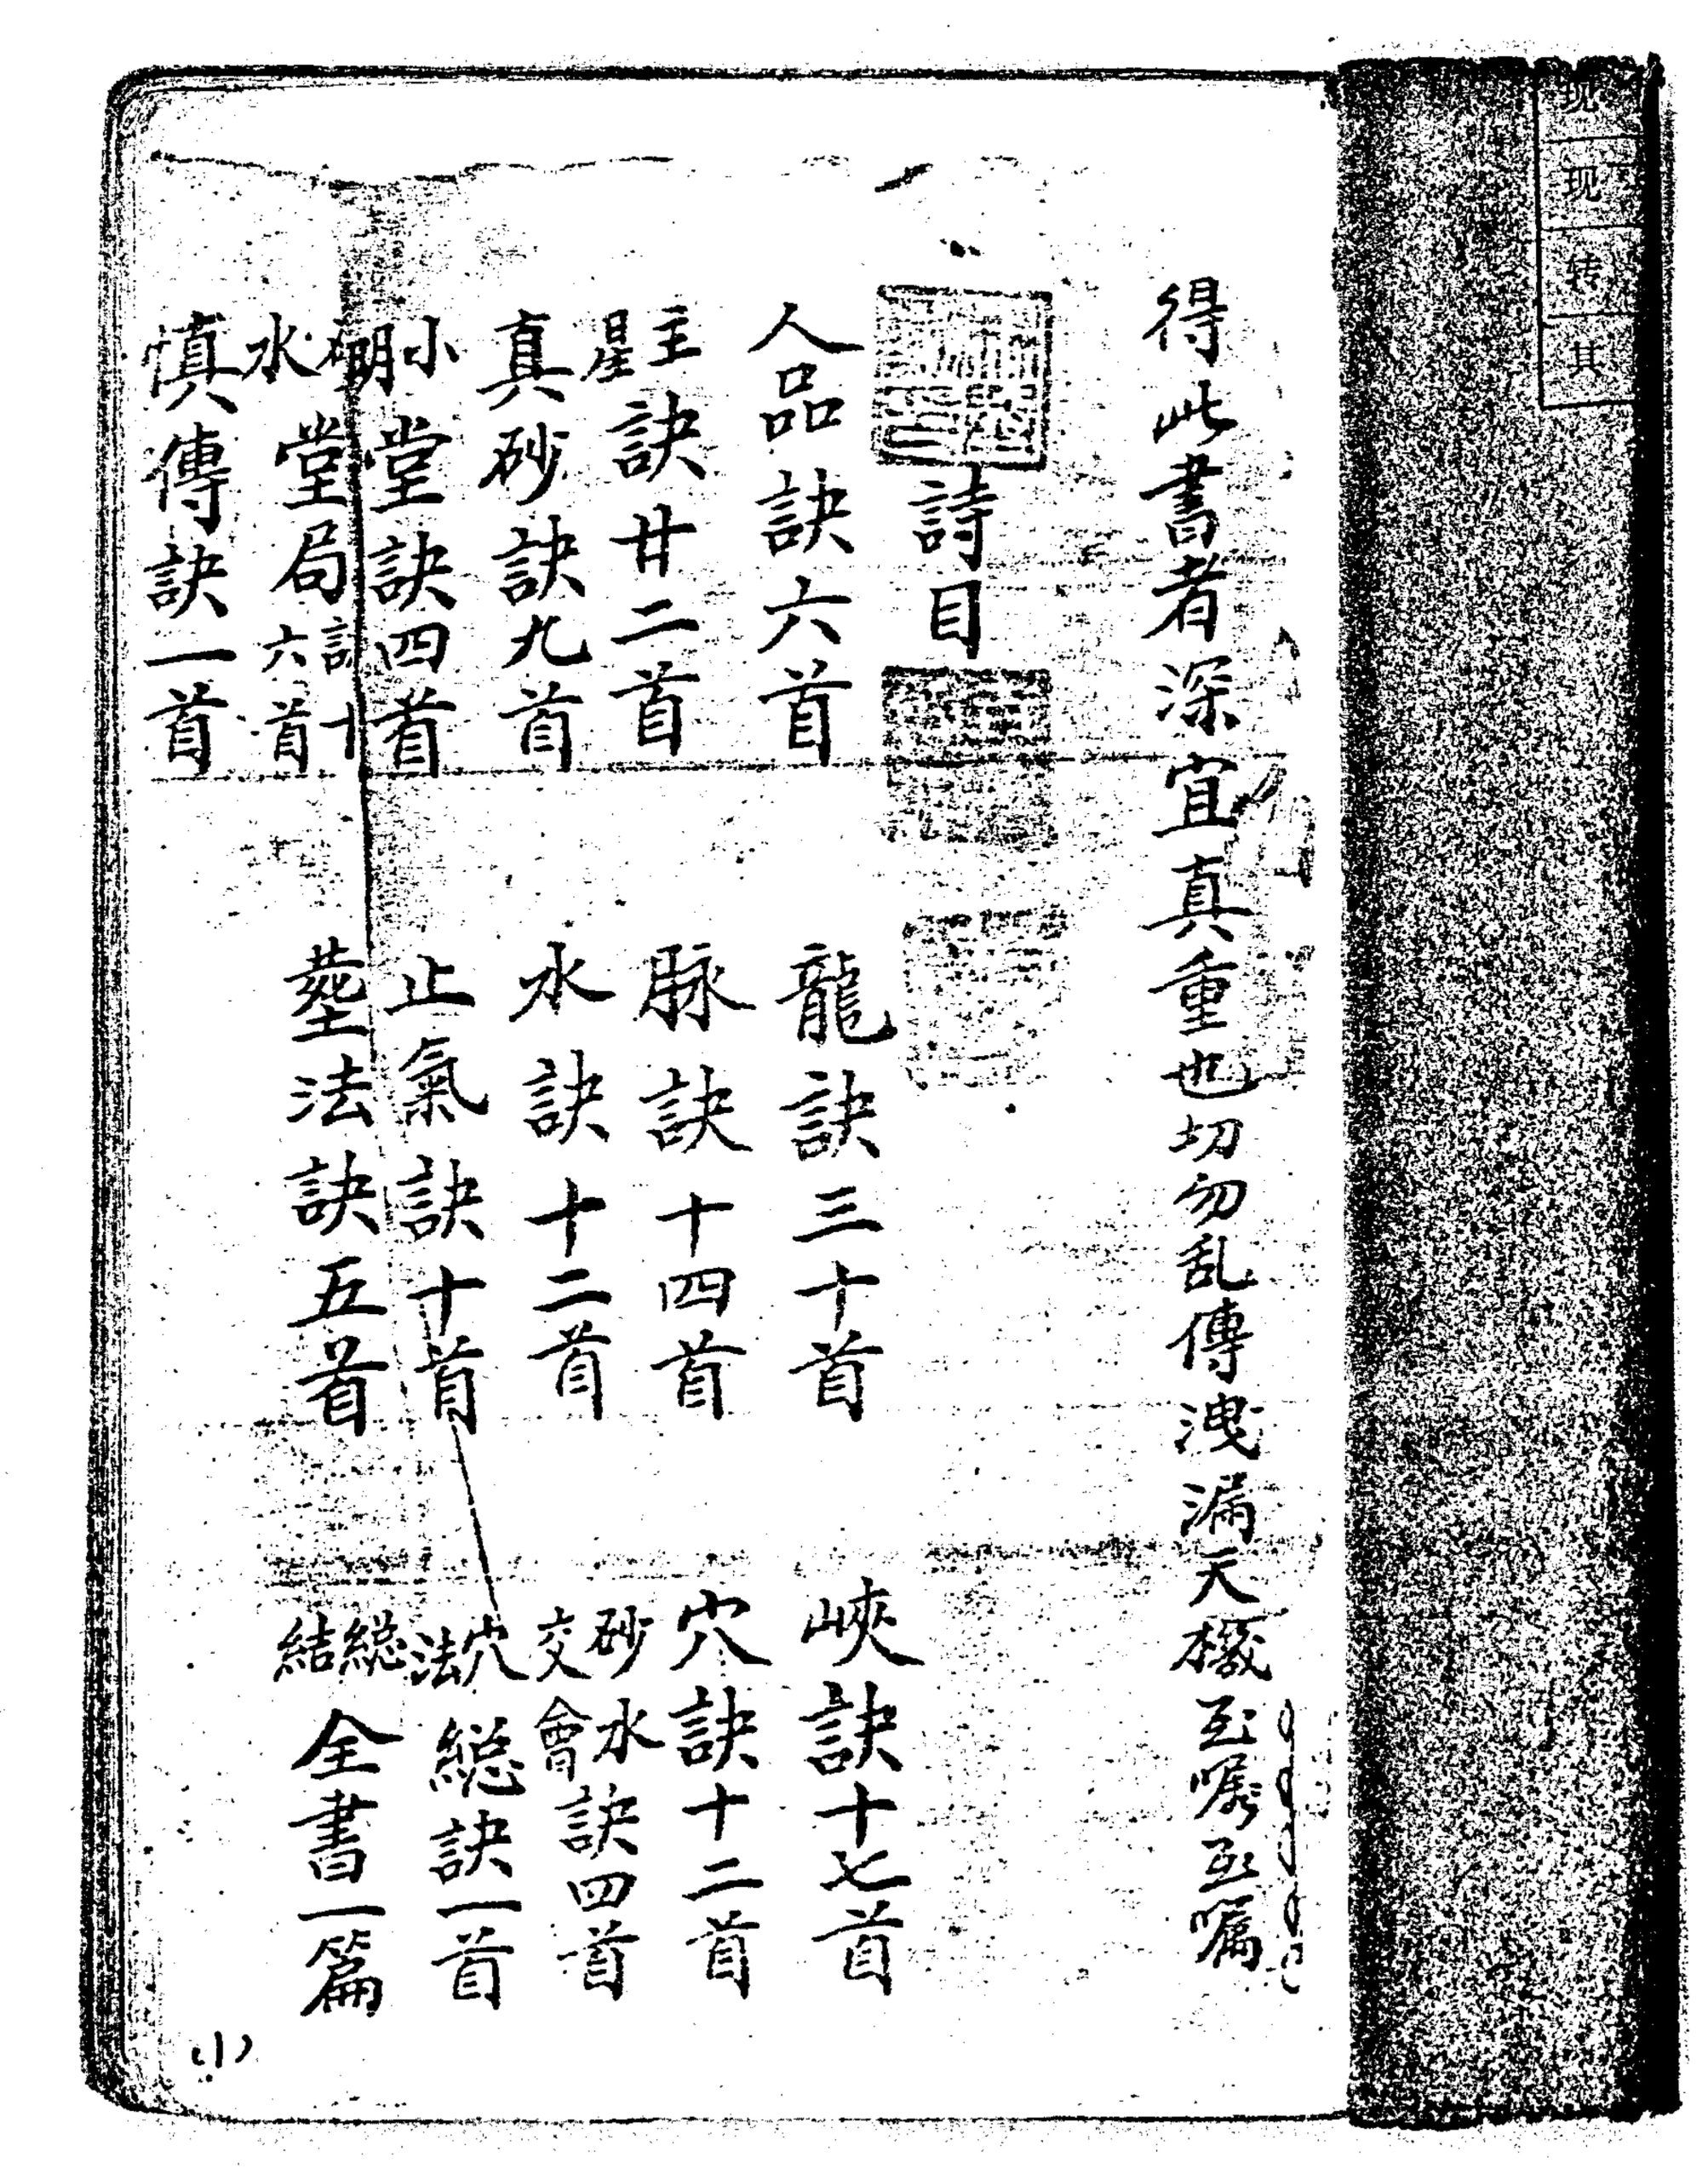 现
现
转
其
得此書者深宜真重也切勿乱傳洩漏天機至嘱至嘱
詩目
人品訣六首 龍訣三十首 峽訣十七首
主星訣廿二首 脉訣十四首 穴訣十二首
真砂訣九首 水訣十二首 砂水交會訣四首
小明堂訣四首 止氣訣十首 穴法総訣一首
水堂局訣十六首 塟法訣五首 総結全書一篇
慎傳訣一首